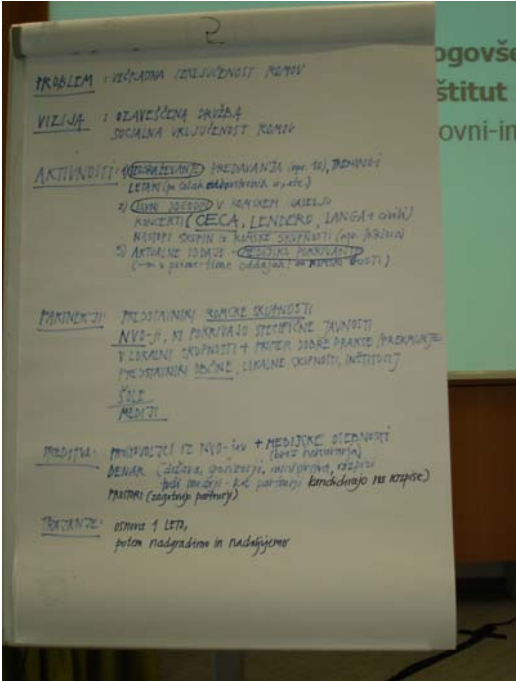 2
PROBLEM : VEČPLASTNA IZKLJUČENOST ROMOV
VIZIJA : OZAVEŠČENA DRUŽBA
SOCIALNA VKLJUČENOST ROMOV
AKTIVNOSTI: 1) IZOBRAŽEVANJE PREDAVANJA (npr. 10), TRENINGI
LETAKI (po šolah
2) JAVNI DOGODKI V ROMSKEM NASELJU
KONCERTI (CECA, LENDERO, LANGA + civili)
NASTOPI SKUPIN iz ROMSKE SKUPNOSTI (npr. folklora)
3) AKTUALNE ODDAJE - MEDIJSKO POKRIVANJE
v prime-time oddajah ROMSKI GOSTI)
PARTNERJI: PREDSTAVNIKI ROMSKE SKUPNOSTI
NVO-ji, KI POKRIVAJO SPECIFIČNE JAVNOSTI
V LOKALNI SKUPNOSTI + PRIMER DOBRE PRAKSE /PREKMURJE
PREDSTAVNIKI OBČINE, LOKALNE SKUPNOSTI, INŠTITUCIJ
ŠOLE
MEDIJI
SREDSTVA: PROSTOVOLJCI IZ NVO-jev + MEDIJSKE OSEBNOSTI
(brez honorarja)
DENAR (država, sponzorji, ministrstva, razpisi
tudi mediji - kot partnerji kandidirajo na razpise)
PROSTORI (zagotovijo partnerji)
TRAJANJE: osnova 1 LETO,
potem nadgradimo in nadaljujemo
ogovše
štitut
ovni-in